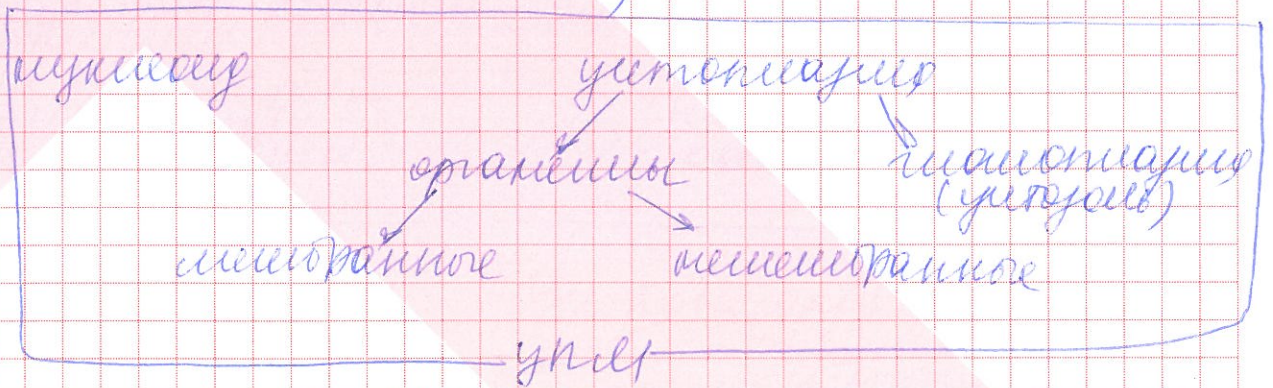 нуклеоид цитоплазма
органеллы гиалоплазма
(цитозоль)
мембранные немембранные
ЦПМ